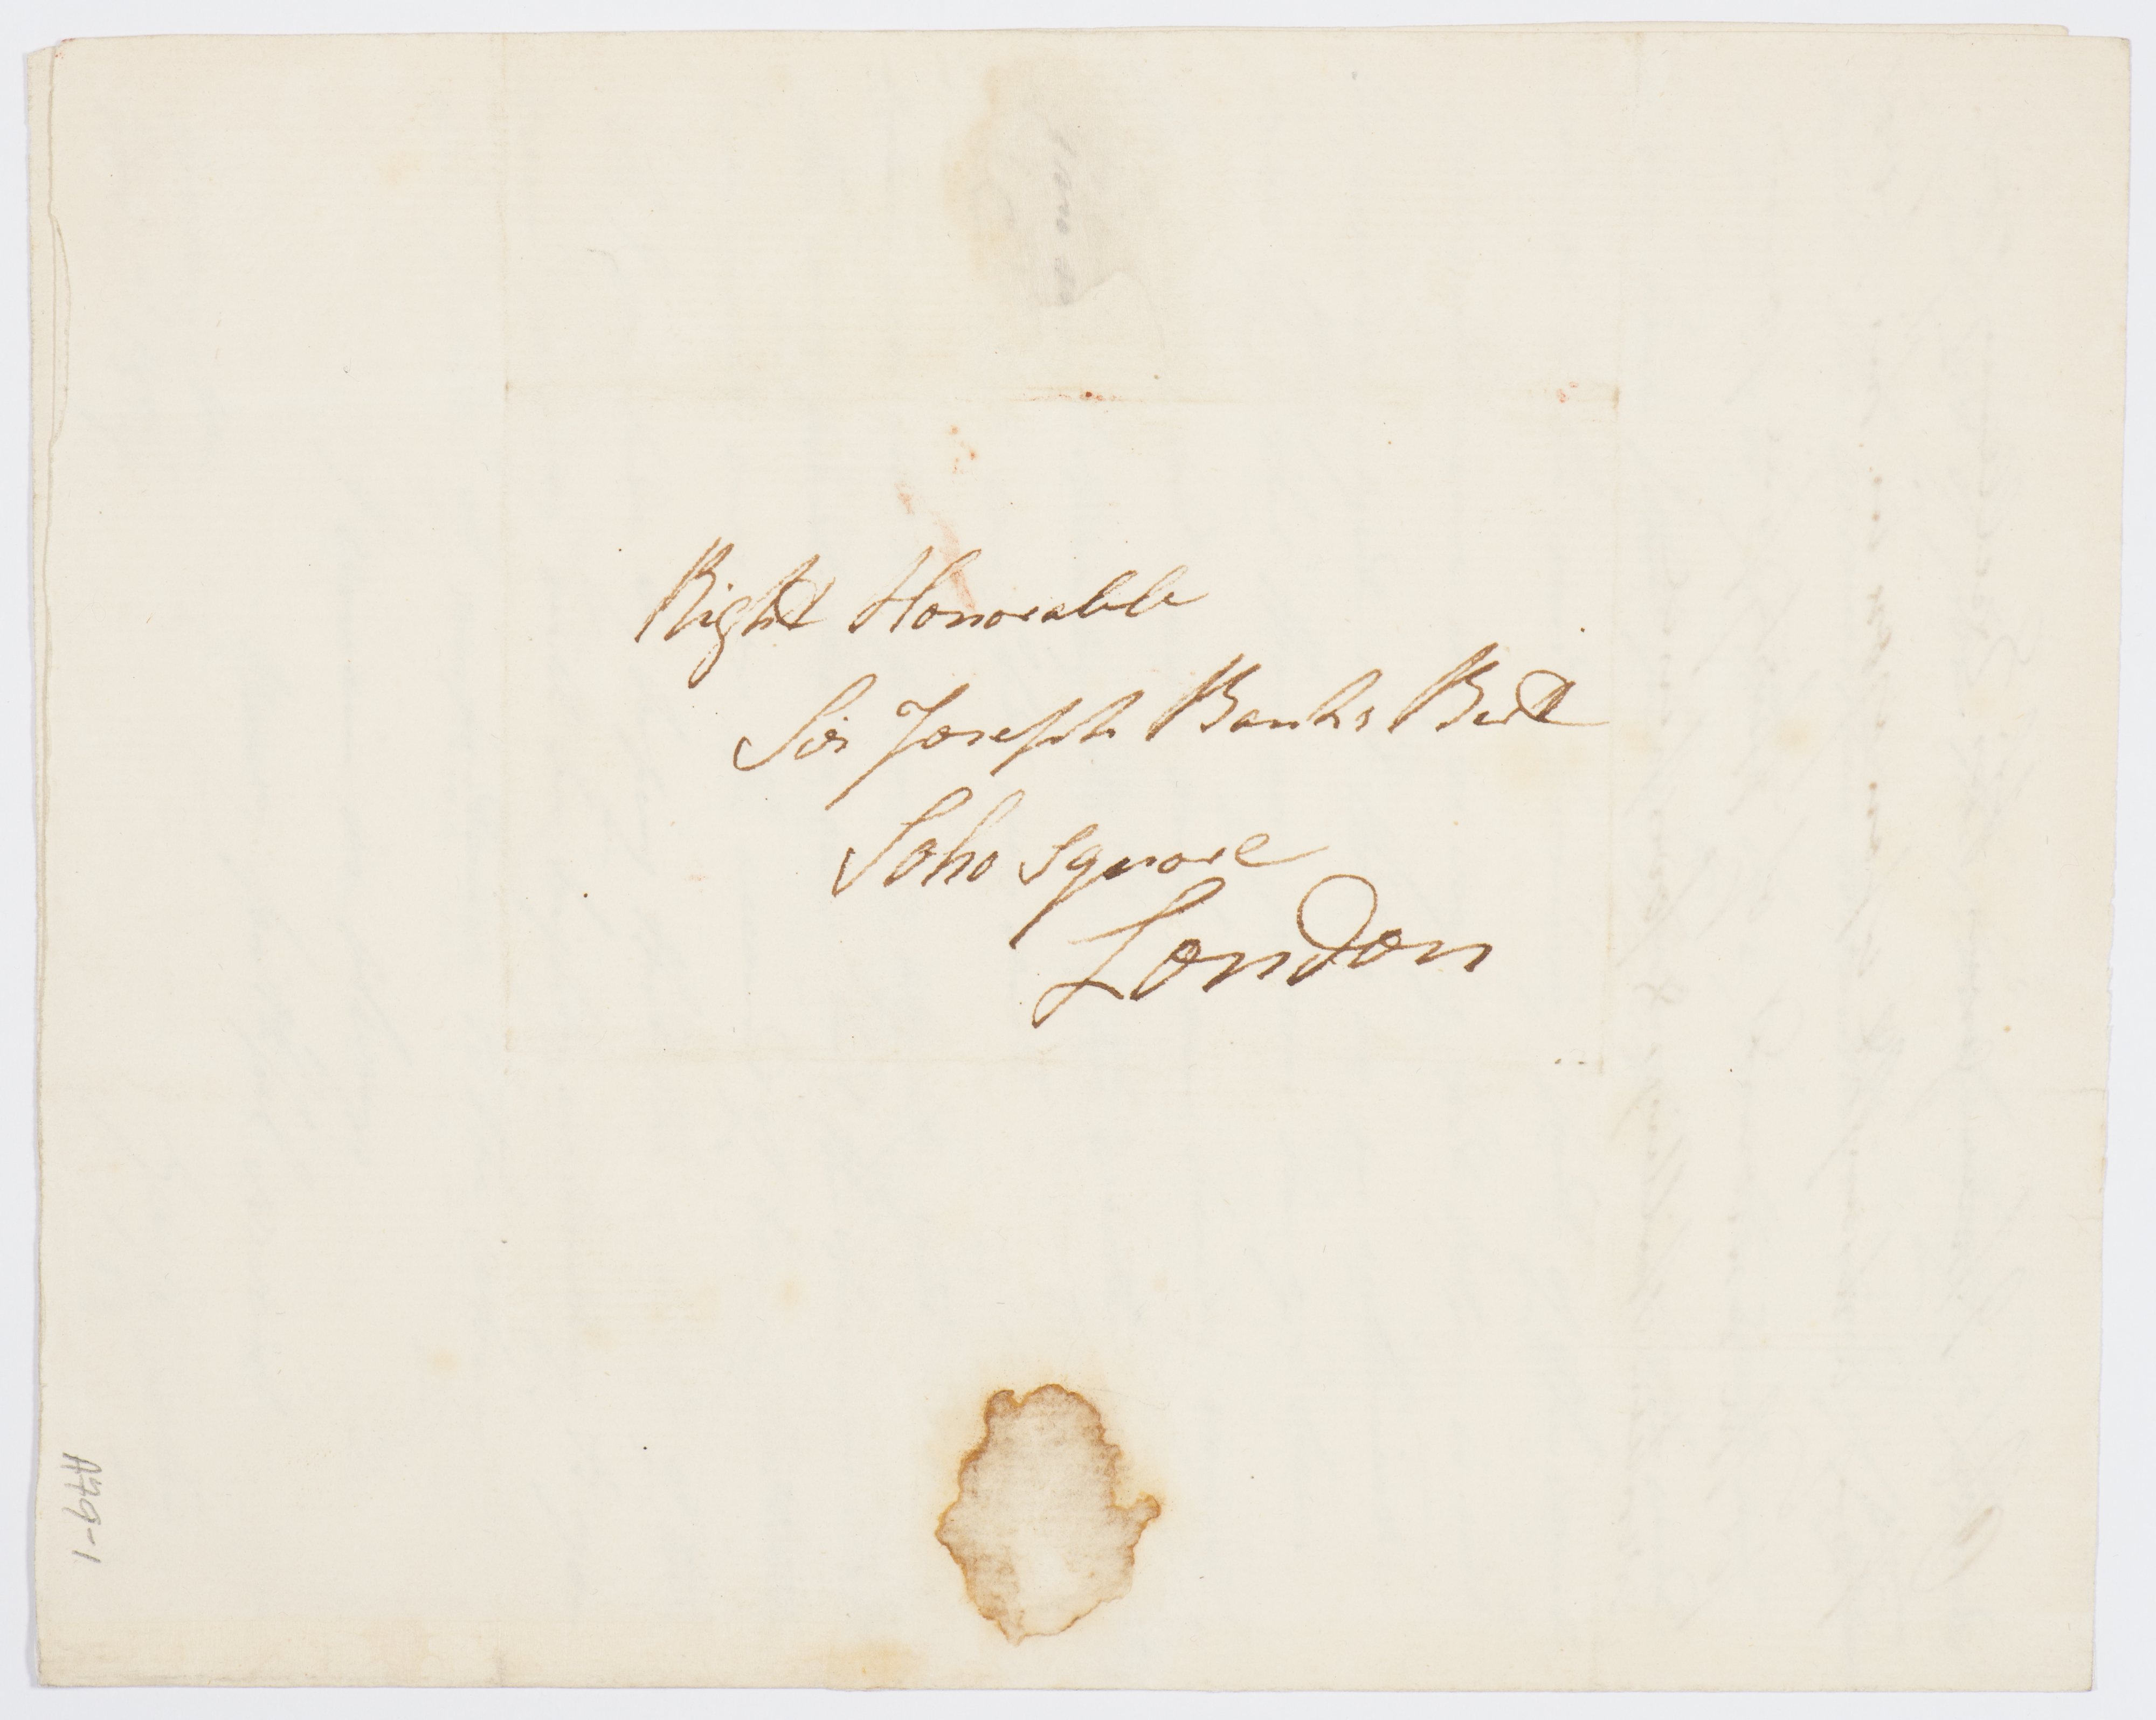 Right Honorable
Sir Joseph Banks Bart
Soho Square
London
A79-1